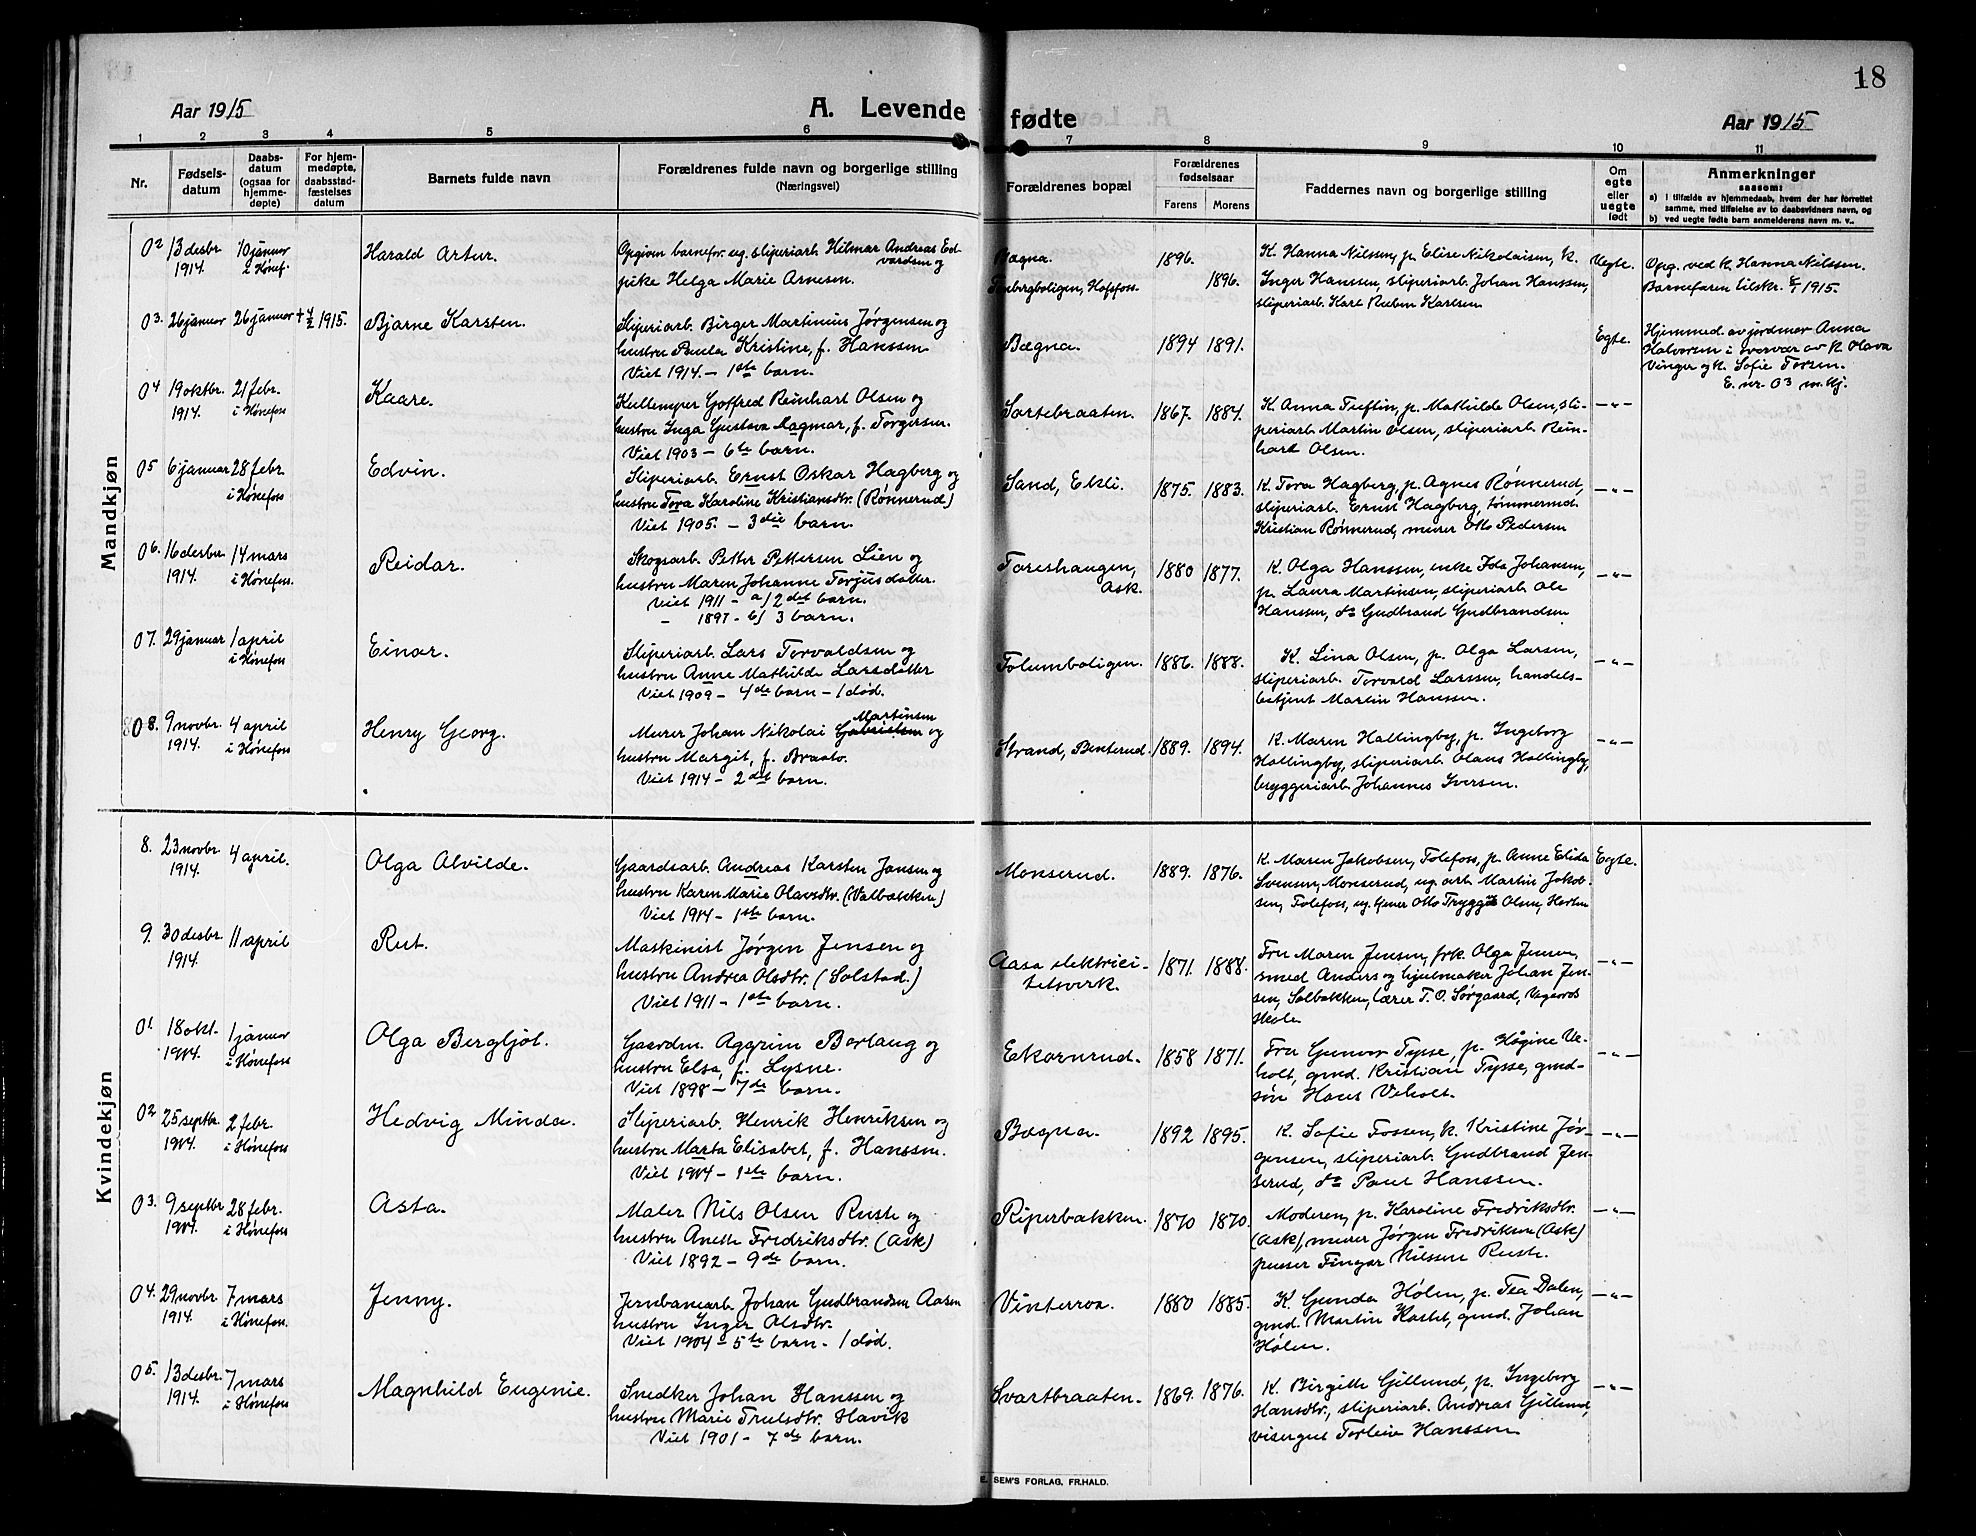 18
Aar 1915
A. Levende fødte
Aar 1915
1 2 3 4 5 6 7 8 9 10 11
Nr.
Fødsels-
datum
Daabs-
datum
(ogsaa for
hjemme-
døpte)
For hjem-
medøpte,
daabsstad-
fæstelses
datum
Barnets fulde navn
Forældrenes fulde navn og borgerlige stilling
(Næringsvei)
Forældrenes bopæl
Forældrenes
fødselsaar
Farens Morens
Faddernes navn og borgerlige stilling
Om
egte
eller
uegte
født
Anmerkninger
saasom:
a) i tilfælde av hjemmedaab, hvem der har forrettet
samme, med tilføielse av to daabsvidners navn, og
b) ved uegte fødte barn anmelderens navn m. v.,
Mandkjøn
02 13 desbr. 1914. 10 januar i Hønef.
Harald Artur.
Opgiven barnefar ug. sliperiarb. Hilmar Andreas Ed-
vardsen og
pike Helga Marie Arnesen.
Bægna.
Hofsfoss.
1896. 1896.
K. Hanna Nilsen, p. Elise Nikolaisen, k.
Inger Hanssen, sliperiarb. Johan Hanssen,
sliperiarb. Karl Ruben Karlsen
Uegte.
Opg. ved k. Hanna Nilssen.
Barnefaren tilskr. 1915.
03. 26 januar 26 januar + 4/2 1915.
Bjarne Karsten.
Sliperiarb. Birger Martinius Jørgensen og
hustru Paula Kristine, f. Hanssen
Viet 1914. - 1ste barn.
Bægna.
1894 1891.
Egte.
Hjemmed. av jordmor Anna
Halvorsen i nærvær av k. Olava
Vinger og k. Sofie Fossen.
E. nr. 03 m. kj.
04 19 oktbr. 1914. 21 febr. i Hønefoss
Kaare.
Kullemiler Gotfred Reinhart Olsen og
hustru Inga Gustava Dagmar, f. Torgersen.
Viet 1903 - 6te barn.
Sortebraaten.
1867. 1884.
K. Anna Tuftin, p. Mathilde Olsen, sli-
periarb. Martin Olsen, sliperiarb. Rein-
hart Olsen.
-"-
05 6 januar 28 febr. i Hønefoss
Edvin.
Sliperiarb. Ernst Oskar Hagberg og
hustru Tora Karoline Kristiansdtr. (Rønnerud)
Viet 1905. - 3die barn.
Sand, Ekli.
1875. 1883.
K. Tora Hagberg, p. Agnes Rønnerud,
sliperiarb. Ernst Hagberg, tømmermd.
Kristian Rønnerud, murer Otto Pedersen
-"-
06. 16 desbr. 1914. 14 mars i Hønefoss.
Reidar.
Skogsarb. Petter Pettersen Lien og
hustru Maren Johanne Torjusdatter.
Viet 1911 - a) 2det barn.
- 1897 - b) 3 barn.
Foreshaugen,
Ask.
1880 1877.
K. Olga Hanssen, enke Ida Johansen,
p. Laura Martinsen, sliperiarb. Ole
Hanssen, do Gudbrand Gudbrandsen
-"-
07. 29 januar 1 april i Hønefoss
Einar.
Sliperiarb. Lars Torvaldsen og
hustru Anne Mathilde Larsdatter
Viet 1909 - 4de barn - 1 død.
Folumboligen.
1886. 1888.
K. Lina Olsen, p. Olga Larsen,
sliperiarb. Torvald Larssen, handels-
betjent Martin Hanssen.
-"-
08. 9 novbr. 1914. 4 april i Hønefoss
Henry Georg.
Martinsen
Murer Johan Nikolai Gabrielsen og
hustru Margit, f. Braato.
Viet 1914 - 2det barn.
Strand, Benterud.
1889. 1894.
K. Maren Hallingby, p. Ingeborg
Hallingby, sliperiarb. Olaus Hallingby,
bryggeriarb. Johannes Iversen.
-"-
Kvindekjøn
8. 23 novbr. 1914. 4 april.
Olga Alvilde.
Gaardsarb. Andreas Karsten Jansen og
hustru Karen Marie Olavsdtr. (Valbækken)
Viet 1914 - 1ste barn.
Monserud.
1889. 1876.
K. Maren Jakobsen, Folefoss, p. Anne Elida
Svensen, Monserud, ug. arb. Martin Jakob-
sen, Folefoss, ug. tjener Otto Trygg Olsen, Horten
Egte.
9. 30 desbr. 1914. 11 april
Rut.
Maskinist Jørgen Jensen og
hustru Andrea Olsdtr. (Solstad.)
Viet 1911 - 1ste barn.
Aasa elektrici-
tetsverk.
1871. 1888.
Fru Maren Jensen, frk. Olga Jensen,
smed Anders og hjulmaker Johan Jen-
sen, Solbakken, lærer T. O. Sørgaard, Vegaards
skole
-"-
01. 18 okt. 1914. 1 januar i Hønefoss
Olga Bergljot.
Gaardm. Aggrim Borlaug og
hustru Elsa, f. Lysne.
Viet 1898 - 7de barn.
Ekornrud.
1858 1871.
Fru Gunvor Tysse, p. Høgine Ve-
holt, gmd. Kristian Tysse, gmd-
søn Hans Veholt.
-"-
02 25 septbr. 1914. 2 febr. i Hønefoss
Hedvig Minda.
Sliperiarb. Henrik Henriksen og
hustru Marta Elisabet, f. Hanssen.
Viet 1914 - 1ste barn.
Bægna.
1892 1895.
K. Sofie Fossen, k. Kristine Jør-
gensen, sliperiarb. Gudbrand Jen-
serud, do Paul Hanssen.
-"-
03. 9 septbr 1914. 28 febr. i Hønefoss
Asta.
Maler Nils Olsen Ruste og
hustru Anette Fredriksdtr. (Ask)
Viet 1892 - 9de barn.
Piperbakken.
1870 1870.
Moderen, p. Karoline Fredriksdtr.
(Ask), murer Jørgen Fredriksen (Ask)
pusser Fingar Nilssen Ruste.
-"-
04. 29 novbr. 1914. 7 mars i Hønefoss.
Jenny.
Jernbanearb. Johan Gudbrandsen Aasen
hustru Inger Olsdtr.
Viet 1904 - 5te barn. - 1 død.
Vinterroa.
1880 1885.
K. Gunda Holm, p. Tea Dalen,
gmd. Martin Hastet, gmd. Johan
Holm.
-"-
05. 13 desbr. 1914. 7 mars i Hønefoss
Magnhild Eugenie.
Snedker Johan Hanssen og
hustru Marie Trulsdtr. Havik
Viet 1901 - 7de barn.
Svartbraaten.
1869. 1876.
K. Birgitte Gjillund, p. Ingeborg
Hansdtr., sliperiarb. Andreas Gjillund,
visergut Torleiv Hanssen
-"-
E. SEM'S FORLAG, FR.HALD.